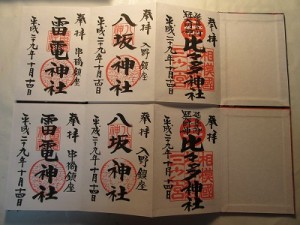 奉拝
比々多神社
平成二十九年十月十四日
奉拝
入野鎮座
八坂神社
平成二十九年十月十四日
奉拝
串橋鎮座
雷電神社
平成二十九年十月十四日
奉拝
比々多神社
平成二十九年十月十四日
奉拝
入野鎮座
八坂神社
平成二十九年十月十四日
奉拝
串橋鎮座
雷電神社
平成二十九年十月十四日